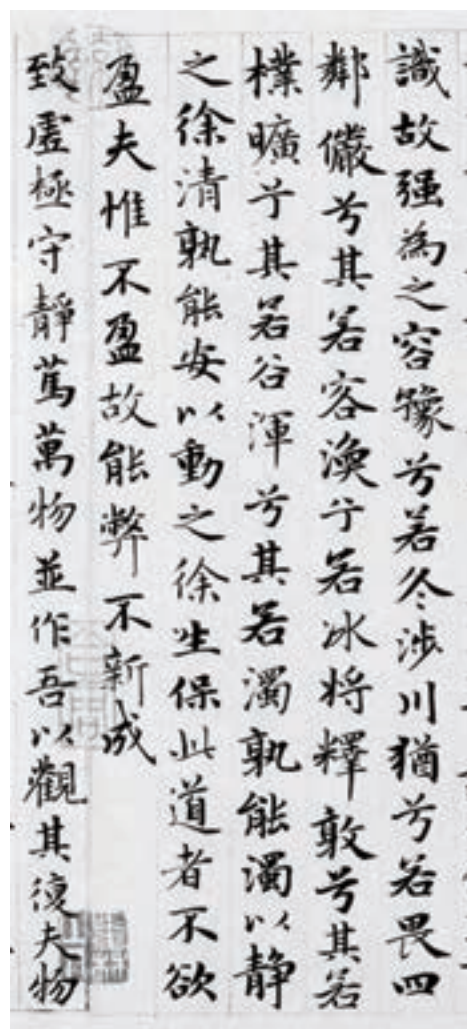 識故强為之容豫兮若冬涉川猶兮若畏四
鄰儼兮其若容渙兮若冰將釋敦兮其若
樸曠兮其若谷渾兮其若濁孰能濁以静
之徐清孰能安以動之徐生保此道者不欲
盈夫惟不盈故能弊不新成
致虛極守靜篤萬物並作吾以觀其復夫物